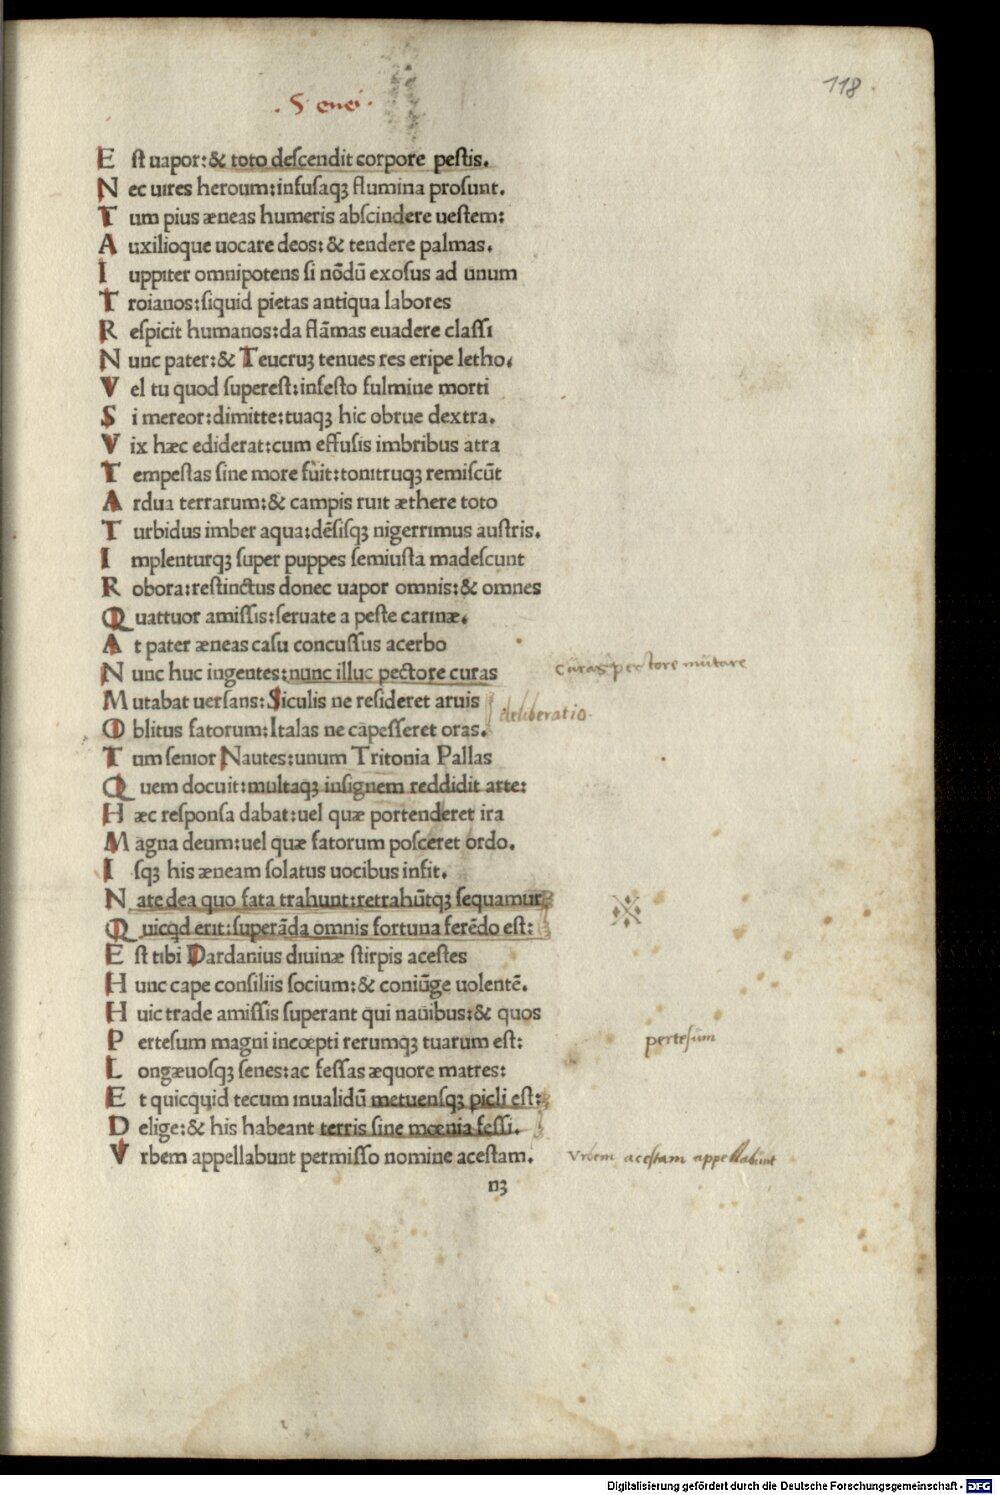 118.
. S enei .
E st uapor: & toto descendit corpore pestis.
N ec uires heroum: infusaqꝫ flumina prosunt.
T um pius æneas humeris abscindere uestem:
A uxilioque uocare deos: & tendere palmas.
I uppiter omnipotens si nõdũ exosus ad unum
T roianos: siquid pietas antiqua labores
R espicit humanos: da flãmas euadere classi
N unc pater: & Teucruꝫ tenues res eripe letho.
V el tu quod superest: infesto fulmine morti
S i mereor: dimitte: tuaqꝫ hic obrue dextra.
V ix hæc ediderat: cum effusis imbribus atra
T empestas sine more fuit: tonitruqꝫ remiscũt
A rdua terrarum: & campis ruit æthere toto
T urbidus imber aqua: dẽsisqꝫ nigerrimus austris.
I mplenturqꝫ super puppes semiusta madescunt
R obora: restinctus donec uapor omnis: & omnes
Q uattuor amissis: seruate a peste carinæ.
A t pater æneas casu concussus acerbo
N unc huc ingentes: nunc illuc pectore curas
curas pectore mutare
M utabat uersans: Siculis ne resideret aruis
deliberatio.
O blitus fatorum: Italas ne capesseret oras.
T um senior Nautes: unum Tritonia Pallas
Q uem docuit: multaqꝫ insignem reddidit arte:
H æc responsa dabat: uel quæ portenderet ira
M agna deum: uel quæ fatorum posceret ordo.
I sqꝫ his æneam solatus uocibus infit.
N ate dea quo fata trahunt: retrahũtqꝫ sequamur
Q uicqd erit: superãda omnis fortuna ferẽdo est:
E st tibi Dardanius diuinæ stirpis acestes
H unc cape consiliis socium: & coniũge uolentẽ.
H uic trade amissis superant qui nauibus: & quos
P ertesum magni incœpti rerumqꝫ tuarum est:
pertesum
L ongæuosqꝫ senes: ac fessas æquore matres:
E t quicquid tecum inualidũ metuensqꝫ picli est:
D elige: & his habeant terris sine mœnia fessi.
V rbem appellabunt permisso nomine acestam.
Vrbem acestam appellabunt
nꝫ
Digitalisierung gefördert durch die Deutsche Forschungsgemeinschaft - DFG